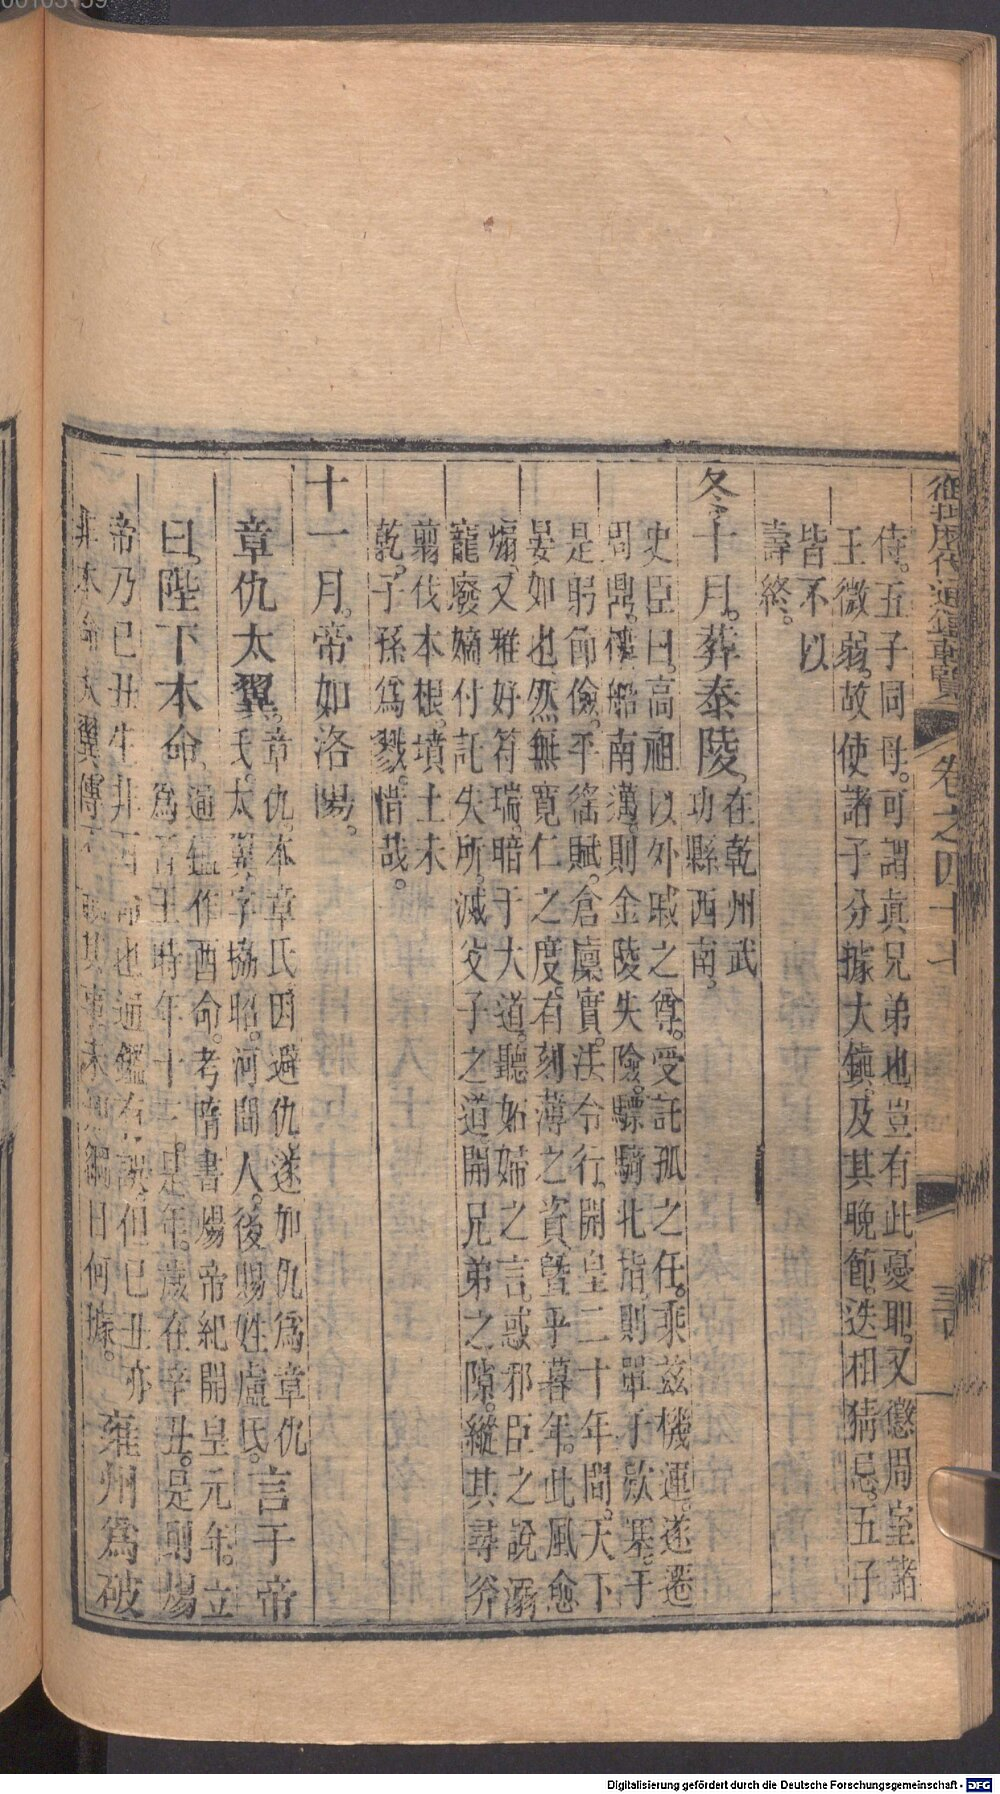 侍。五子同母。可謂眞兄弟也豈有此憂耶。又懲周室諸
王微弱。故使諸子分據大鎮。及其晚節。迭相猜忌。五子
皆不以
壽終。
冬十月。葬泰陵。在乾州武
功縣西南。
史臣曰。高祖以外戚之尊。受託孤之任。乘茲機運。遂遷
周鼎。樓船南邁。則金陵失險。驃騎北指。則單于款塞。于
是躬節儉。平徭賦。倉廩實。法令行。開皇二十年間。天下
晏如也。然無寬仁之度。有刻薄之資。曁乎暮年。此風愈
煽。又雅好符瑞。暗于大道。聽妬婦之言。惑邪臣之說。溺
寵廢嫡。付託失所。滅父子之道。開兄弟之隙。縱其尋斧
翦伐本根。墳土未
乾。子孫為戮。惜哉。
十一月。帝如洛陽。
章仇太翼。章仇。本章氏。因避仇遂加仇為章仇
氏。太翼字協昭。河間人。後賜姓盧氏。言于帝
曰。陛下本命。通鑑作酉命。考隋書煬帝紀開皇元年。立
為晉王時年十三。是年。歲在辛丑。是則煬
帝乃己丑生非酉命也通鑑有誤。但己丑亦
非木命太翼傳 載其事未知綱目何據。雍州為破
御批歷代通鑑輯覽
卷之四十七
Digitalisierung gefördert durch die Deutsche Forschungsgemeinschaft - DFG